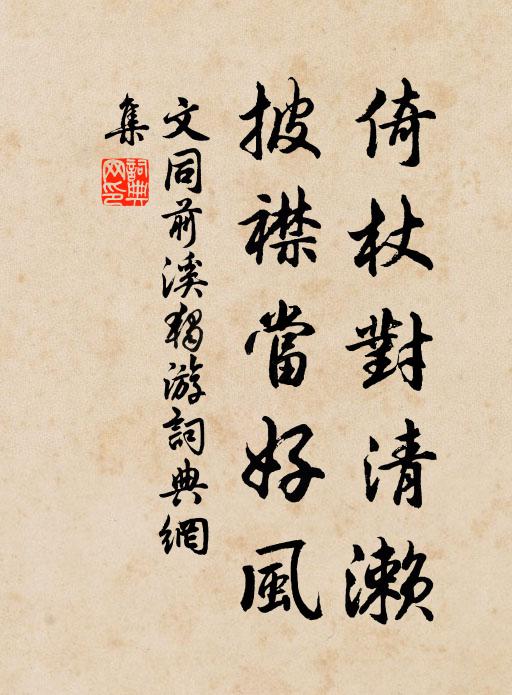 倚杖對清瀨
披襟當好風
文同前溪獨游詞典網
集
詞典網印